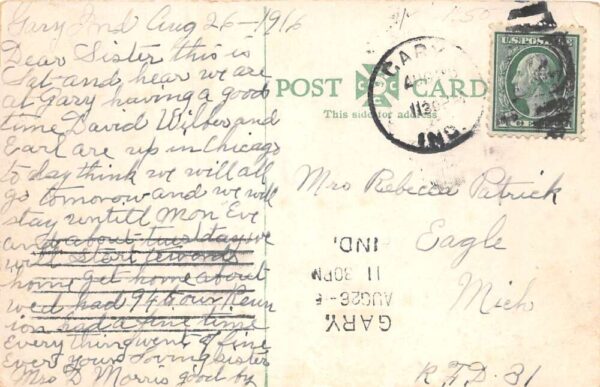 Gary Ind Aug 26-1916
Dear Sister this is
Sat and hear we are
at Gary having a good
time David Wilber and
Earl are up in Chicago
to day think we will all
go tomorow and we will
stay untill Mon Eve
and about tuesday we
will start towards
home get home about
wed had 946 our Reun
ion had a fine time
Every thing went of fine
Ever your loving sister
Mrs D Morris good by
POST CARD
This side for address
GARY
1130
IND.
U.S. POSTAGE
Mrs Rebecca Patrick
Eagle
Mich
R.F.D. 31
GARY,
AUG26
11 30PM
IND.
1.50